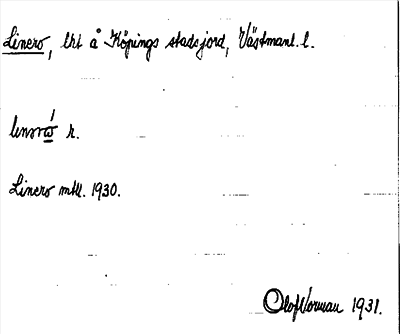 Linero, lht å Köpings stadsjord, Västmanl. l.
r.
Linero mtl. 1930.
Olof Norman 1931.